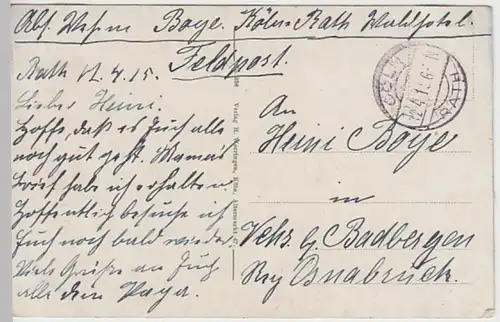 Abs. Wehrm. Boye. Köln-Rath Waldhotel.
Feldpost.
Rath 12.4.15.
Lieber Heini.
Hoffe, daß es Euch alle
noch gut geht. Mama's
Brief habe ich erhalten.
Hoffentlich besuche ich
Euch noch bald wieder.
Viele Grüße an Euch
alle dein Papa.
An
Heini Boye
in
Vehs. b. Badbergen
Bez Osnabrück.
RATH
Verlag H. Köln,